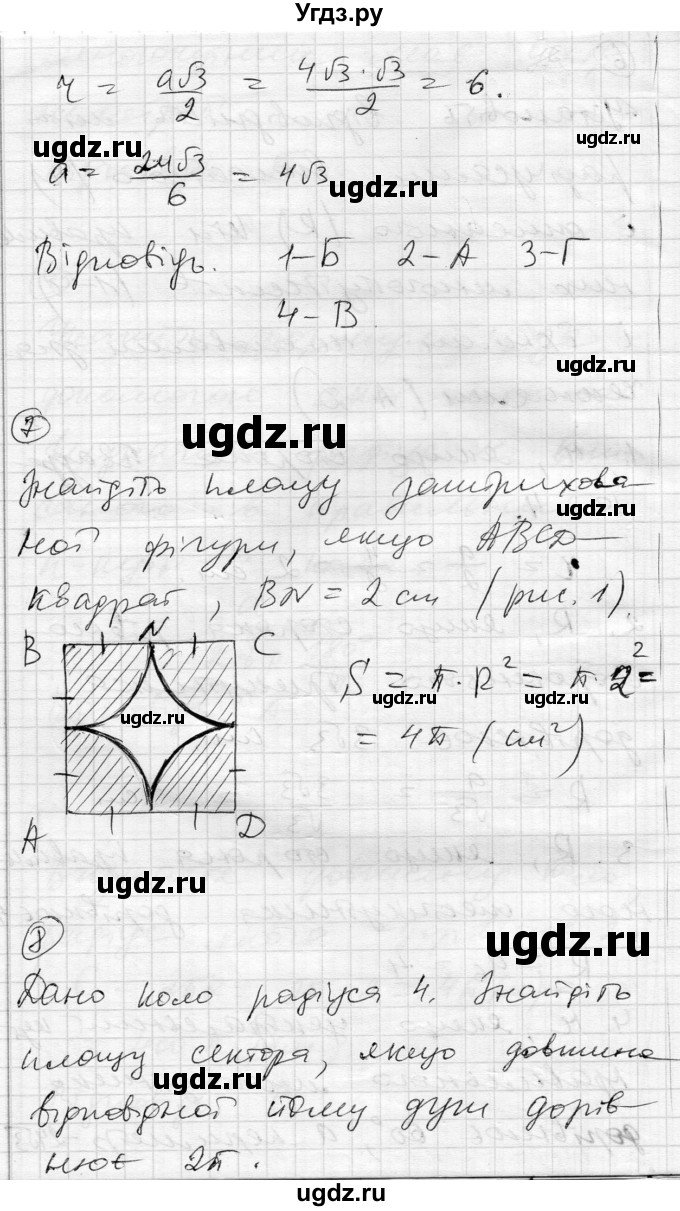 Угдз.ру
r = a√3/2 = 4√3·√3/2 = 6.
ugdz.ru
a = 24√3/6 = 4√3
ugdz.ru
Відповідь. 1-Б 2-А 3-Г
4-В
ugdz.ru
7
ugdz.ru
Знайдіть площу заштрихова-
ugdz.ru
ної фігури, якщо ABCD-
квадрат, BN = 2 см (рис. 1)
B N C
S = π·R² = π·2² =
ugdz.ru ugdz.ru ugdz.ru
ugdz.ru
= 4π (см²)
A D
ugdz.ru
8
ugdz.ru
Дано коло радіуся 4. Знайдіть
площу сектора, якщо довжина
ugdz.ru
відповідної йому дуги дорів-
нює 2π.
ugdz.ru